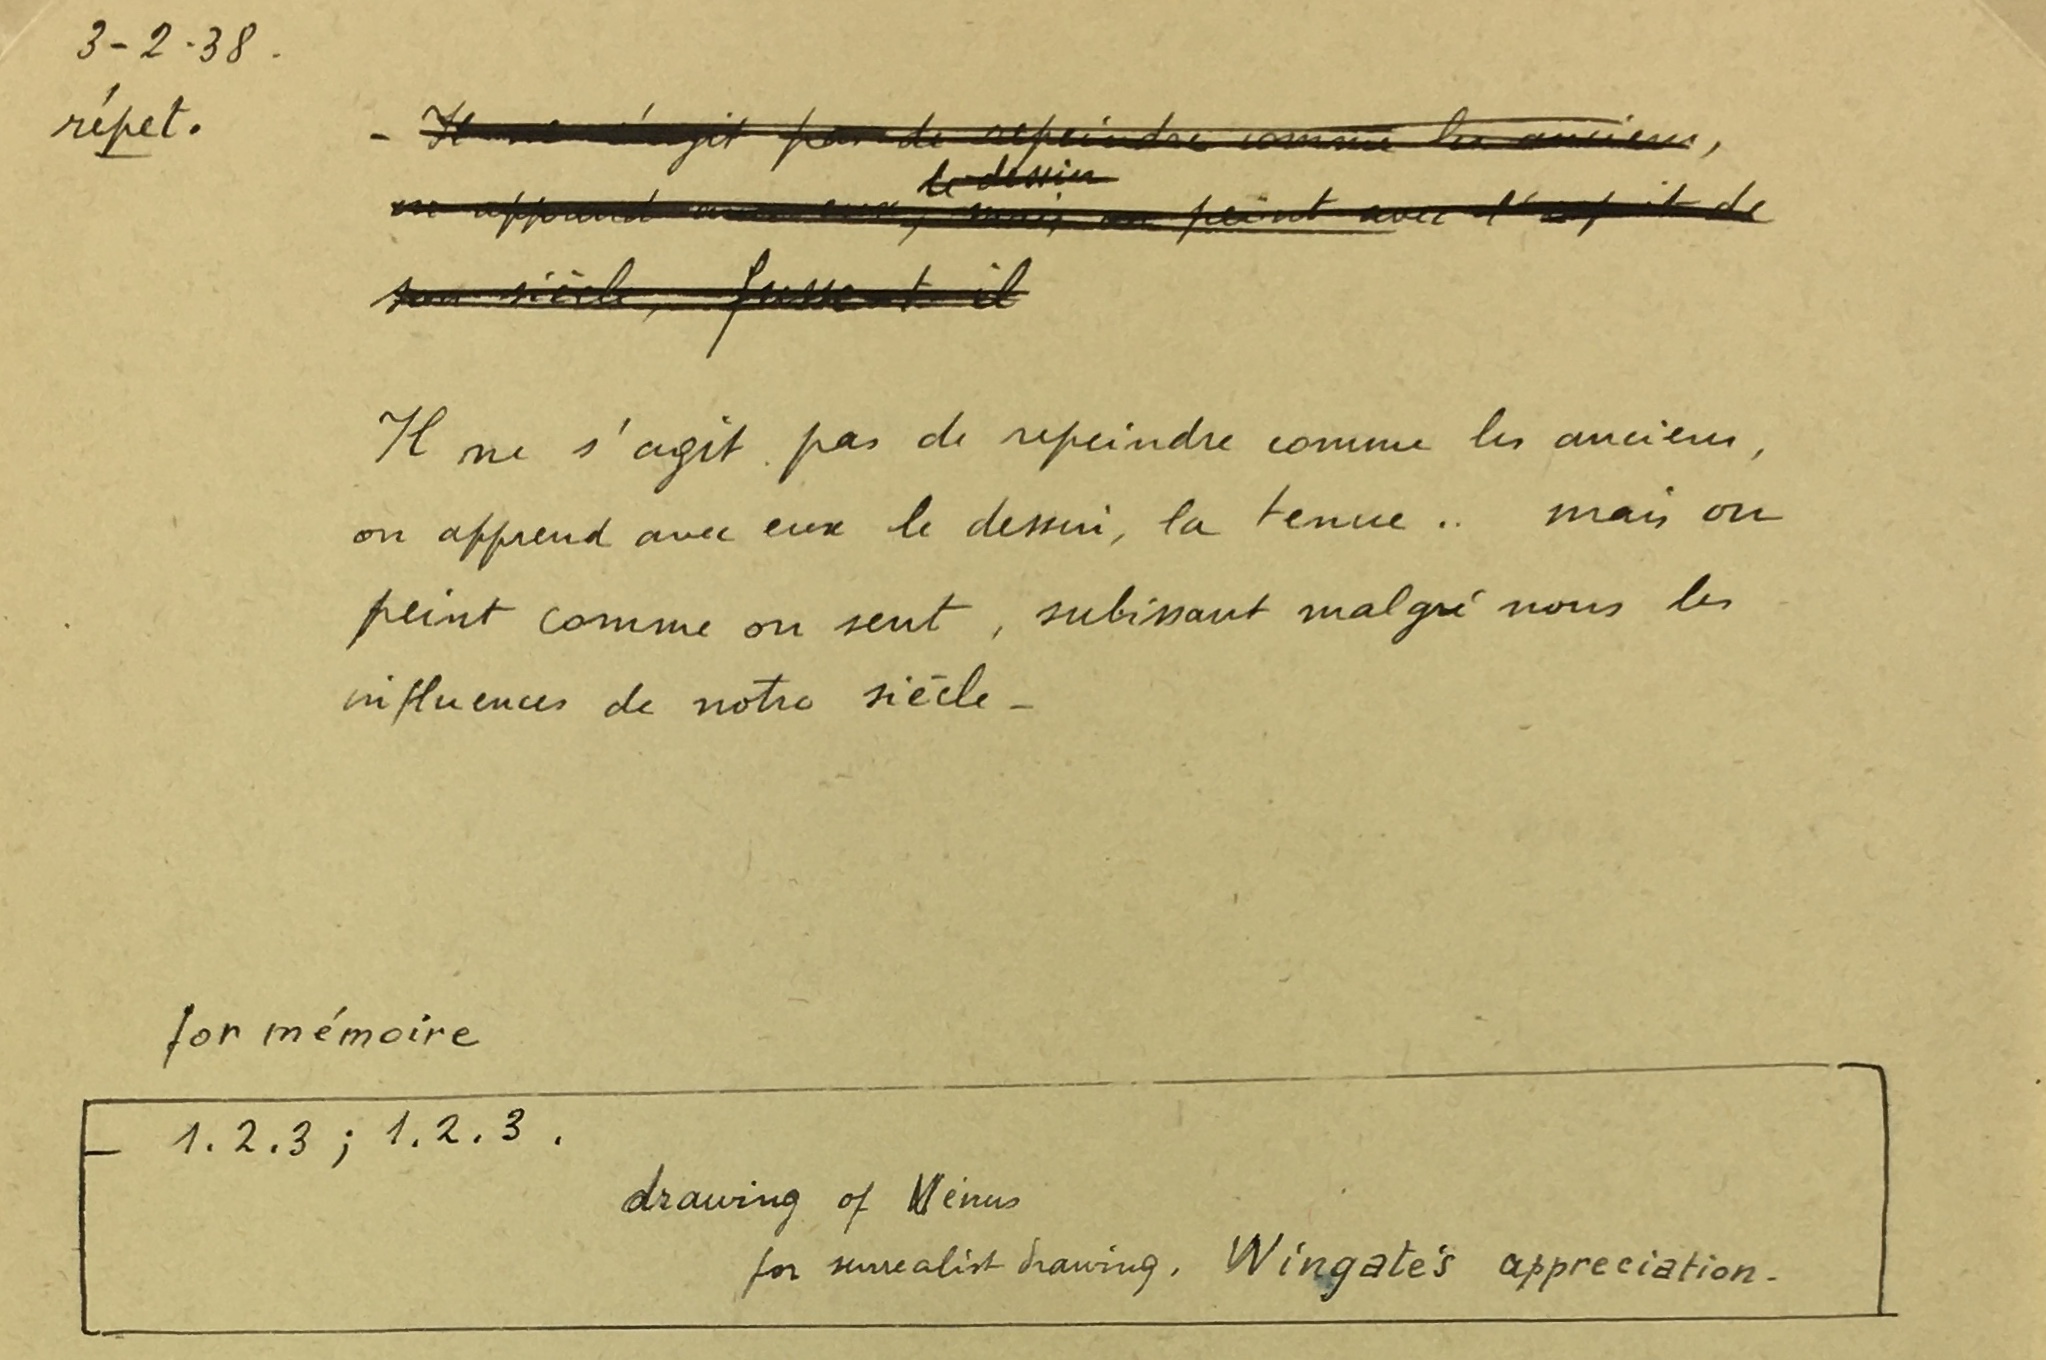 3-2-38.
répet.
- Il ne s'agit pas de repeindre comme les anciens,
le dessin
on apprend avec eux, mais on peint avec l'esprit de
son siècle, fussent il
Il ne s'agit pas de repeindre comme les anciens,
on apprend avec eux le dessin, la tenue .. mais on
peint comme on sent, subissant malgré nous les
influences de notre siècle -
for mémoire
- 1.2.3 ; 1.2.3 .
drawing of Vénus
for surrealist drawing. Wingate's appreciation.